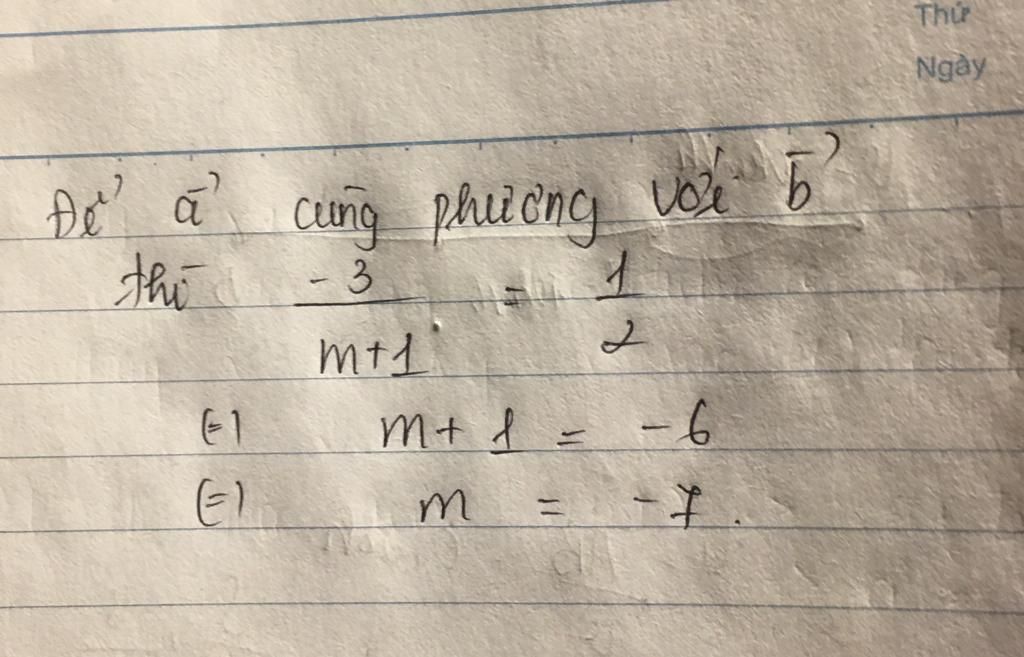 Thứ
Ngày
Để a⃗ cùng phương với b⃗
thì -3/(m+1) = 1/2
(=) m+1 = -6
(=) m = -7.